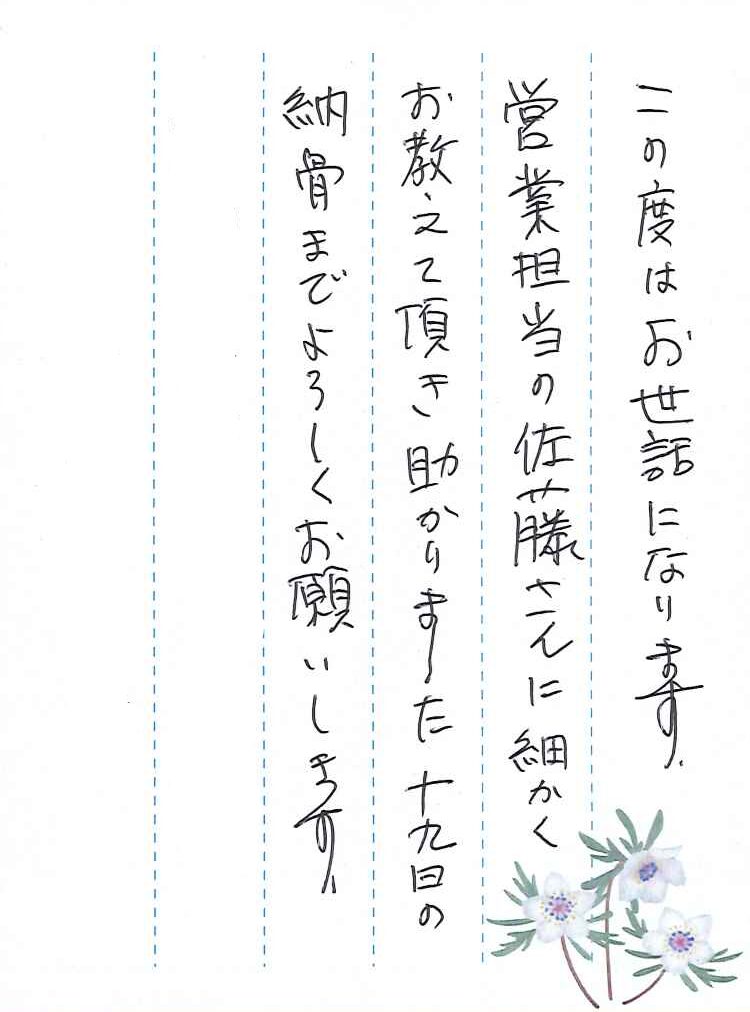 この度はお世話になります、
営業担当の佐藤さんに細かく
お教えて頂き助かりました十九日の
納骨までよろしくお願いします、